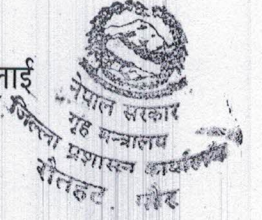 लाई
नेपाल सरकार
गृह मन्त्रालय
जिल्ला प्रशासन कार्यालय
रौतहट गौर